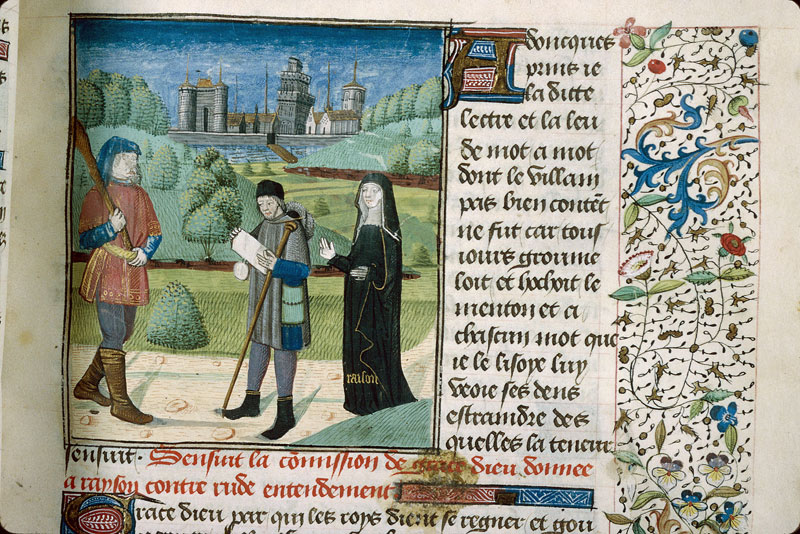 Adoncques
prins ie
la ditte
lectre et la leu
de mot a mot
dont le villain
pas bien contẽt
ne fut car tous
iours groume
loit et hochoit le
menton et a
chascun mot que
ie le lisoye luy
veoie ses dens
estraindre des
quelles la teneur
raison
sensuit. Sensuit la cõmission de grace dieu donnee
a rayson contre rude entendement
Grace dieu par qui les roys dient se regner et gou